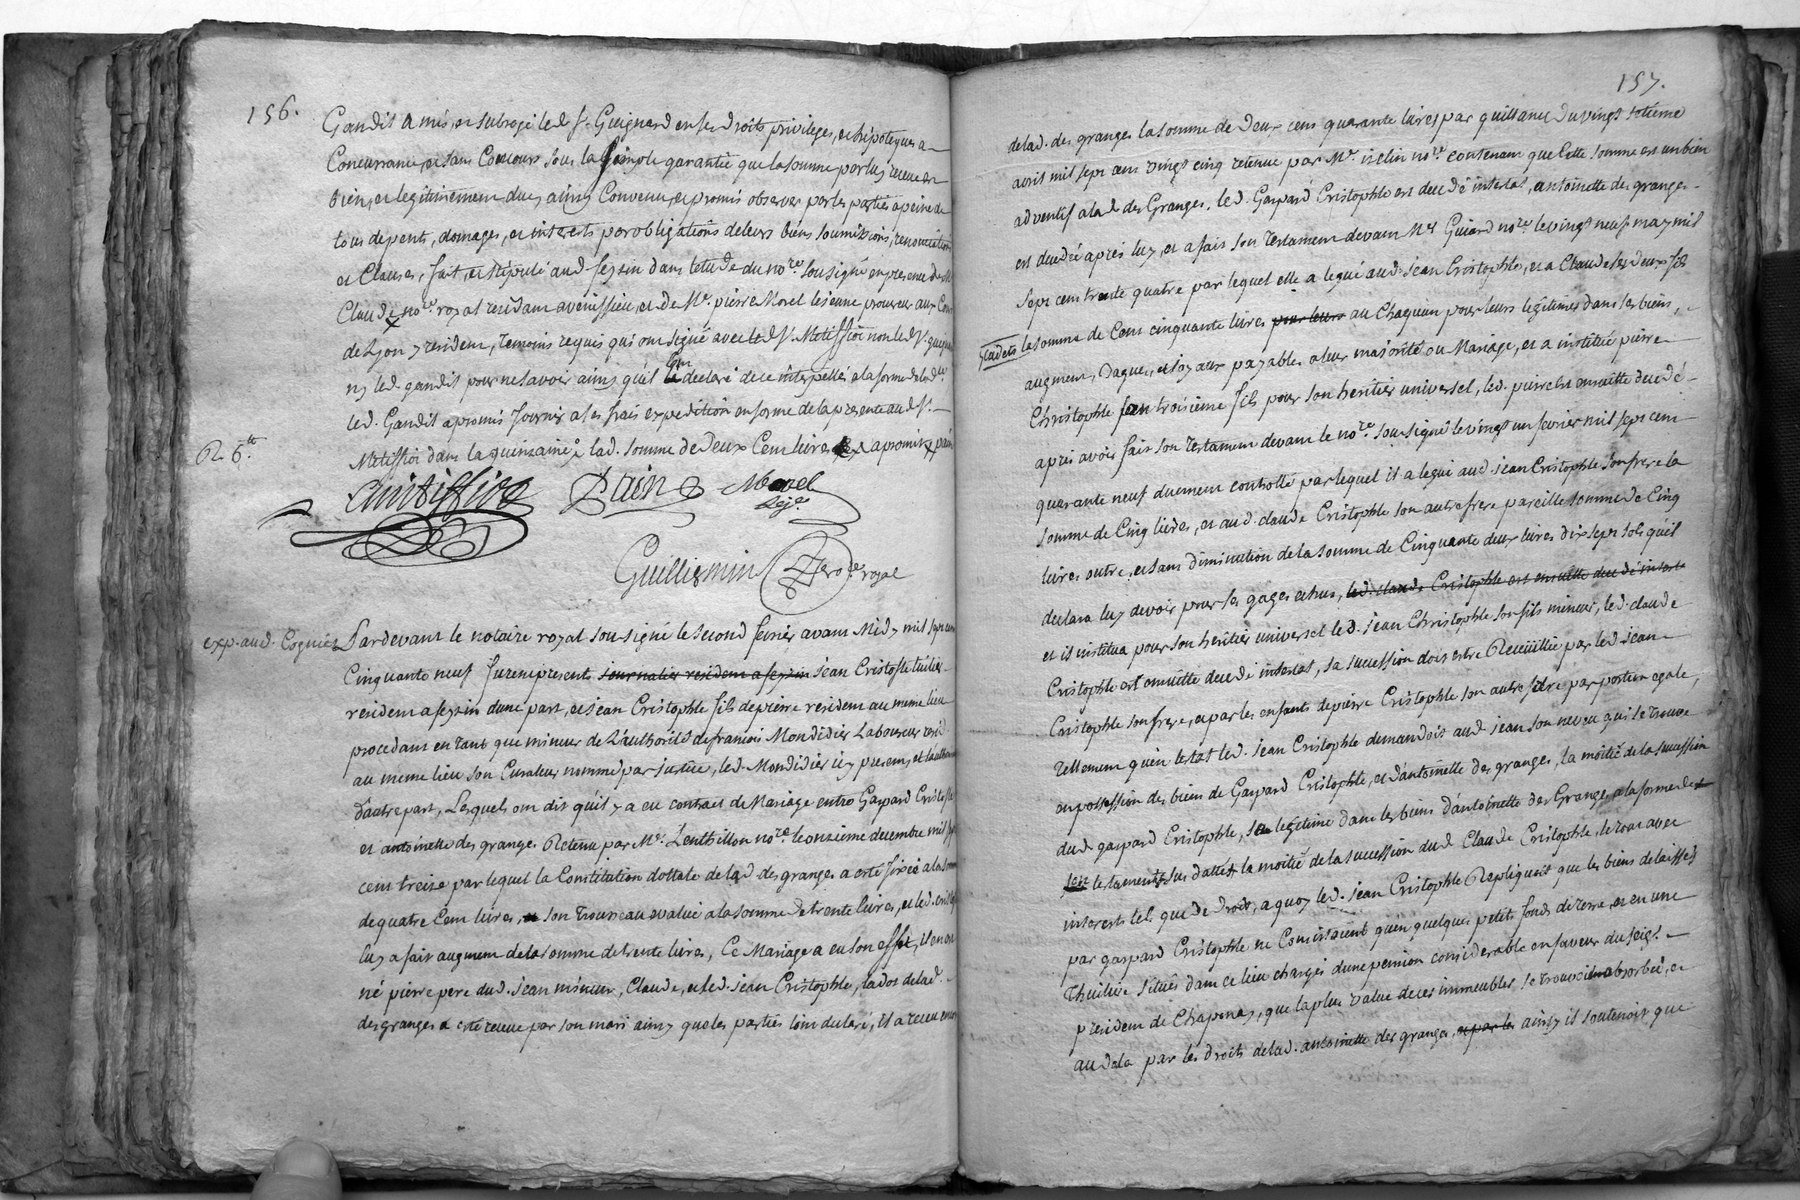 156.
Gandit a mis, et subrogé led Sr. Guignard en ses droits privileges, et hipoteques a
Concurrance, et sans Concours sous la simple garantie que la somme par luy receue est
bien, et legitimement due, ainsy Convenu, et promis observer par les parties a peine de
tous depens, domages, et interests par obligations de leurs biens soumissions, renonciations
et Clauses, fait, et stipulé aud feysin dans letude du nore. sousigné en presence de
Claude nore. royal residant a venissieu, et de Me. pierre Morel lejeune procureur aux Cours
de Lyon y resident, temoins requis qui ont signé avec led Sr. Metissioz non led Sr. guigna
ny led. gandit pour ne savoir ainsy qu'il ont declaré de ce interpellés a la forme de lad
led. Gandit a promis fournir a ses frais expedition en forme de la presente aud Sr.
R. 6.tt
Metissioz dans la quinzaine lad. somme de Deux Cent livres a promis
Pain Morel
Lejne
Guilliermin nore. royal
exp. aud. Cogniet
Pardevant le notaire royal sousigné le second fevrier avant Midy mil sept cent
Cinquante neuf furent presents journalier resident a feysin Jean Cristofle tuilier
resident a feysin dune part, et Jean Cristophle fils de pierre resident au meme lieu
procedant en tant que mineur de L'authorité de francois Mondidier Laboureur resid
au meme lieu son Curateur nommé par justice, led. Mondidier icy present, et
dautre part, Lesquels ont dit qu'il y a eu contract de Mariage entre Gaspard Cristofle
et antoinette des granges Retenu par Me. Lenthillon nore. le onzieme decembre mil sept
cent treize par lequel la Constitution dottale de lad des granges a esté fixée a la somme
de quatre Cent livres, son Trousseau evalué a la somme de trente livres, et led. cristofle
luy a fait augment de la somme de trente livres, Ce Mariage a eu son effet, il en est
né pierre pere dud. jean mineur, Claude, et led. jean Cristophle, la dot de lad.
des granges a esté receue par son mari ainsy que les parties lont declaré, il a receu encor
157.
de lad. des granges la somme de Deux cens quarante livres par quittance du vingt sixieme
avril mil sept cens vingt cinq retenue par Me. nore. contenant que Cette somme est un bien
adventif a lad des Granges. led. Gaspard Cristophle est decedé intestat, antoinette des granges
est decedée aprés luy, et a fait son Testament devant Me Guiard nore le vingt neuf may mil
sept cens trente quatre par lequel elle a legué aud. jean Cristophle, et a Claude ses deux fils
cadets la somme de Cent cinquante livres pour leurs au Chaquun pour leurs legitimes dans ses biens,
augment, bagues, et joyaux payables a leur majorité ou Mariage, et a institué pierre
Christophle son troisieme fils pour son heritier universel, led. pierre est ensuitte decedé
apres avoir fait son Testament devant le nore. sousigné le vingt un fevrier mil sept cens
quarante neuf duement controllé par lequel il a legué aud. jean Cristophle son frere la
somme de Cinq livres, et aud. claude Cristophle son autre frere pareille somme de Cinq
livres outre, et sans diminution de la somme de Cinquante deux livres dix sept sols qu'il
declara luy devoir pour ses gages echus, led. claude Cristophle est ensuitte decedé intestat
et il institua pour son heritier universel led. jean Christophle son fils mineur, led. claude
Cristophle est ensuitte decedé intestat, sa succession doit estre Recueillie par led jean
Cristophle son frere, et par les enfants de pierre Cristophle son autre frere par portion egale,
Tellement qu'en l'estat led. jean Cristophle demandoit aud. jean son neveu qui se trouve
en possession des biens de Gaspard Cristophle, et d'antoinette des granges, la moitié de la succession
dud gaspard Cristophle, sa legitime dans les biens d'antoinette des Granges a la forme de
son testament sus datté la moitié de la succession dud. Claude Cristophle, le tout avec
interests tels que de Droit, a quoy led. jean Cristophle Repliquoit que les biens delaissés
par gaspard Cristophle ne Consistoient qu'en quelques petits fonds de terre, et en une
Thuiliere situés dans ce lieu chargés dune pension considerable en faveur du seigr.
president de Chaponay, que la plus value de ces immeubles se trouvoit absorbée, et
au dela par les droits de lad. antoinette des granges, et par les ainsy il soutenoit que